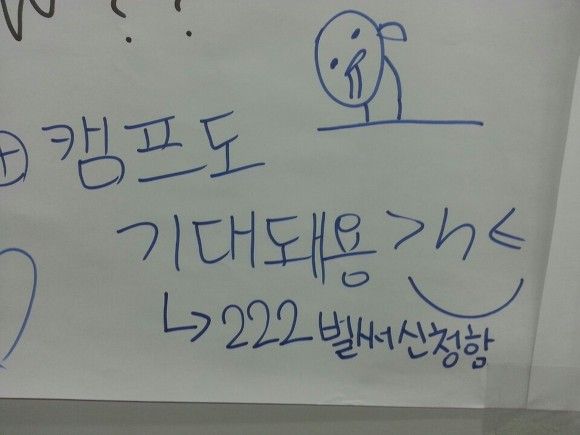 ??
⊕ 캠프도
기대돼용 >ㅅ<
↳ 222 벌써신청함